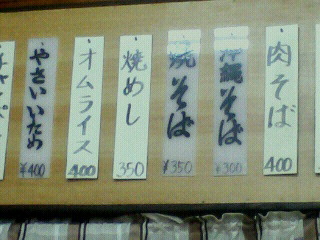 肉そば
400
沖縄そば
¥300
焼そば
¥350
焼めし
350
オムライス
400
やさいいため
¥400